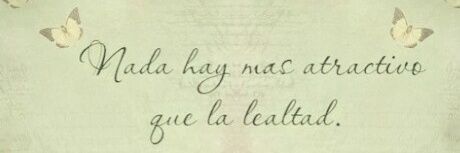 Nada hay mas atractivo
que la lealtad.